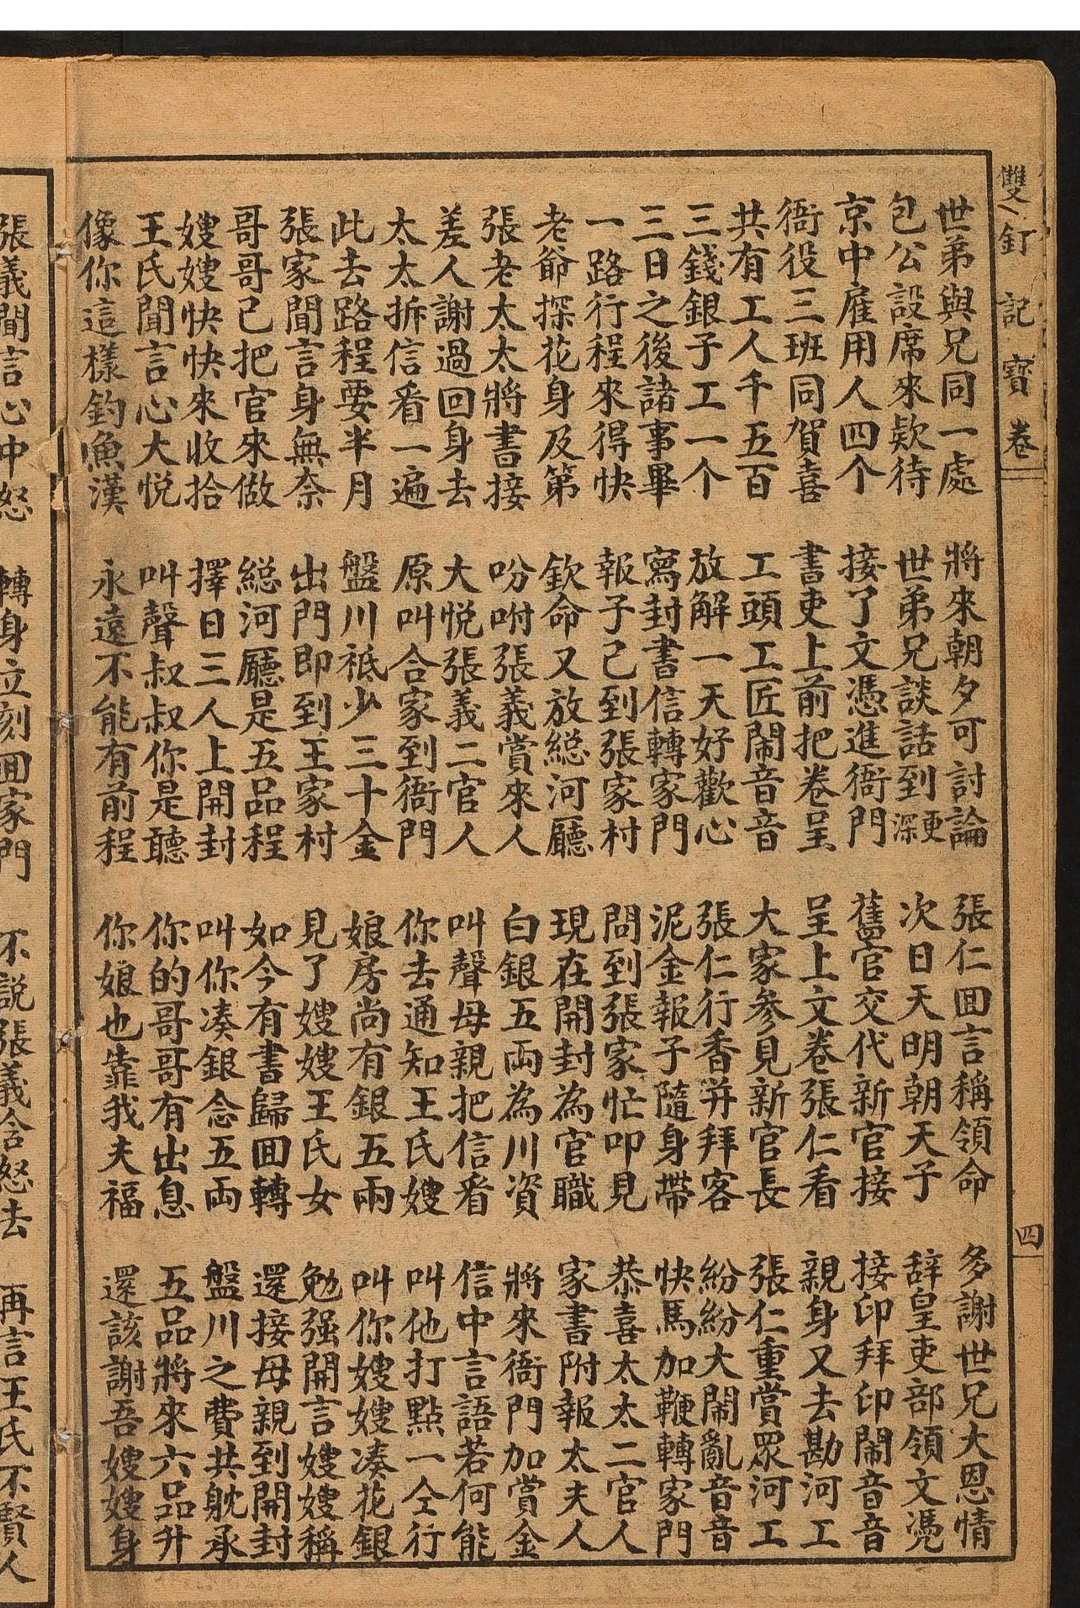 雙釘記寶卷
四
世弟與兄同一處 將來朝夕可討論 張仁囬言稱領命 多謝世兄大恩情
包公設席來欵待 世弟兄談話到深更 次日天明朝天子 辞皇吏部領文憑
京中雇用人四个 接了文憑進衙門 舊官交代新官接 接印拜印鬧音音
衙役三班同賀喜 書吏上前把卷呈 呈上文卷張仁看 親身又去勘河工
共有工人千五百 工頭工匠鬧音音 大家參見新官長 張仁重賞眾河工
三錢銀子工一个 放解一天好歡心 張仁行香并拜客 紛紛大鬧亂音音
三日之後諸事畢 寫封書信轉家門 泥金報子隨身帶 快馬加鞭轉家門
一路行程來得快 報子己到張家村 問到張家忙叩見 恭喜太太二官人
老爺探花身及第 欽命又放総河廳 現在開封為官職 家書附報太夫人
張老太太將書接 吩咐張義賞來人 白銀五両為川資 將來衙門加賞金
差人謝過回身去 大悅張義二官人 叫聲母親把信看 信中言語若何能
太太拆信看一遍 原叫合家到衙門 你去通知王氏嫂 叫他打點一仝行
此去路程要半月 盤川祗少三十金 娘房尚有銀五兩 叫你嫂嫂凑花銀
張家聞言身無奈 出門即到王家村 見了嫂嫂王氏女 勉强開言嫂嫂稱
哥哥己把官來做 総河廳是五品程 如今有書歸囬轉 還接母親到開封
嫂嫂快快來收拾 擇日三人上開封 叫你凑銀念五両 盤川之費共躭承
王氏聞言心大悦 叫聲叔叔你是聽 你的哥哥有出息 五品將來六品升
像你這樣釣魚漢 永遠不能有前程 你娘也靠我夫福 還該謝吾嫂嫂身
張義聞言心中怒 轉身立刻囬家門 不說張義含怒去 再言王氏不賢人